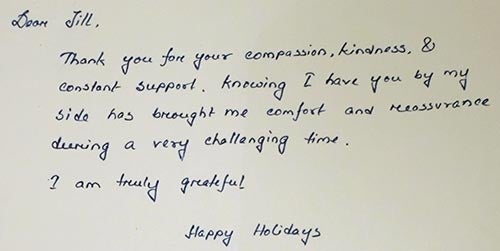 Dear Jill,
Thank you for your compassion, kindness, &
constant support. Knowing I have you by my
side has brought me comfort and reassurance
during a very challenging time.
I am truly grateful
Happy Holidays